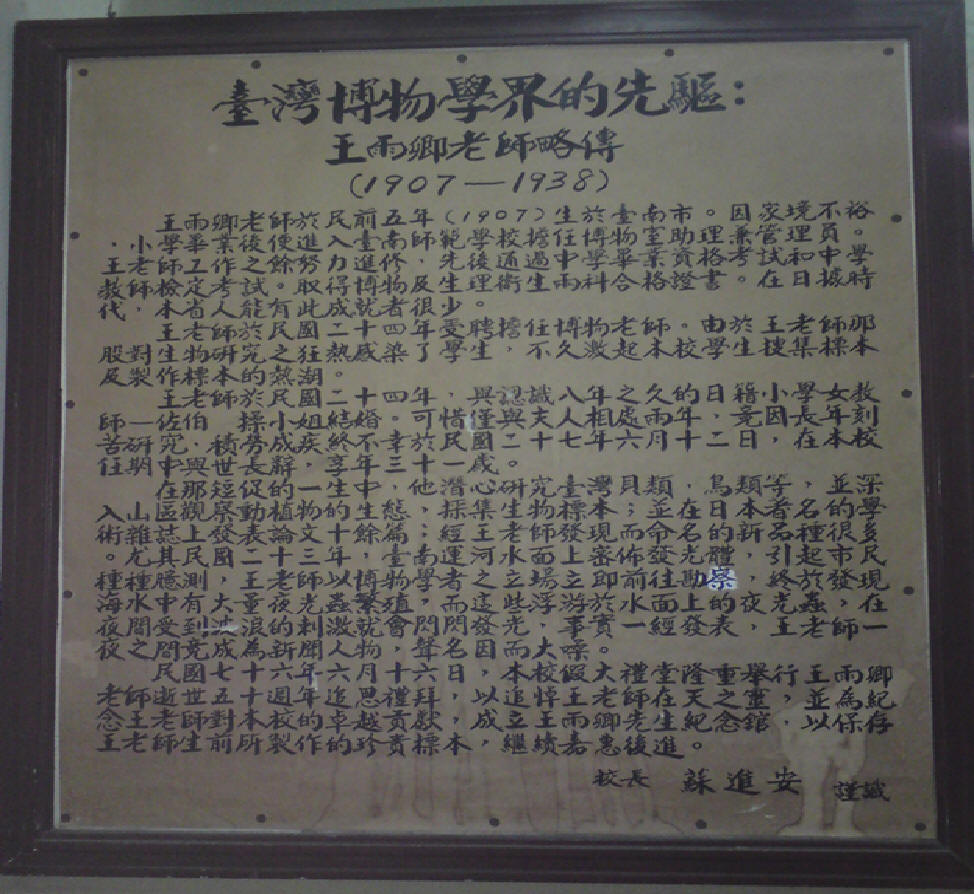 臺灣博物學界的先驅：
王雨卿老師略傳
(1907—1938)
王雨卿老師於民前五年(1907)生於臺南市。因家境不裕
，小學畢業後便進入臺南師範學校擔任博物室助理兼管理員。
王老師工作之餘努力進修，先後通過中學畢業資格考試和中學
教師檢定考試，取得博物及生理衛生兩科合格證書。在日據時
代，本省人能有此成就者很少。
王老師於民國二十四年受聘擔任博物老師。由於王老師那
股對生物研究之狂熱感染了學生，不久激起本校學生搜集標本
及製作標本的熱潮。
王老師於民國二十四年，與認識八年之久的日籍小學女教
師佐伯操小姐結婚。可惜僅與夫人相處兩年，竟因長年刻
苦研究，積勞成疾，終不幸於民國二十七年六月十二日，在本校
任期中與世長辭，享年三十一歲。
在那短促的一生中，他潛心研究臺灣貝類，鳥類等，並深
入山區觀察動植物生態，採集生物標本；在日本著名的學
術雜誌上發表論文十餘篇：經王老師發現而命名的新品種很多
。尤其民國二十三年，臺南運河水面上審佈發光體，引起市民
種種臆測，王老師以博物學者之立場立即前往勘察，終於發現
海水中有大量夜光蟲繁殖，而這些浮游於水面上的夜光蟲，在
夜間受到波浪的刺激就會閃閃發光，事實一經發表，王老師一
夜之間竟成為新聞人物，聲名因而大噪。
民國七十六年六月十六日，本校假大禮堂隆重舉行王雨卿
老師逝世五十週年追思禮拜，以追悼王老師在天之靈，並為紀
念王老師對本校的卓越貢獻，成立王雨卿先生紀念館，以保存
王老師生前所製作的珍貴標本，繼續嘉惠後進。
校長 蘇進安 謹識